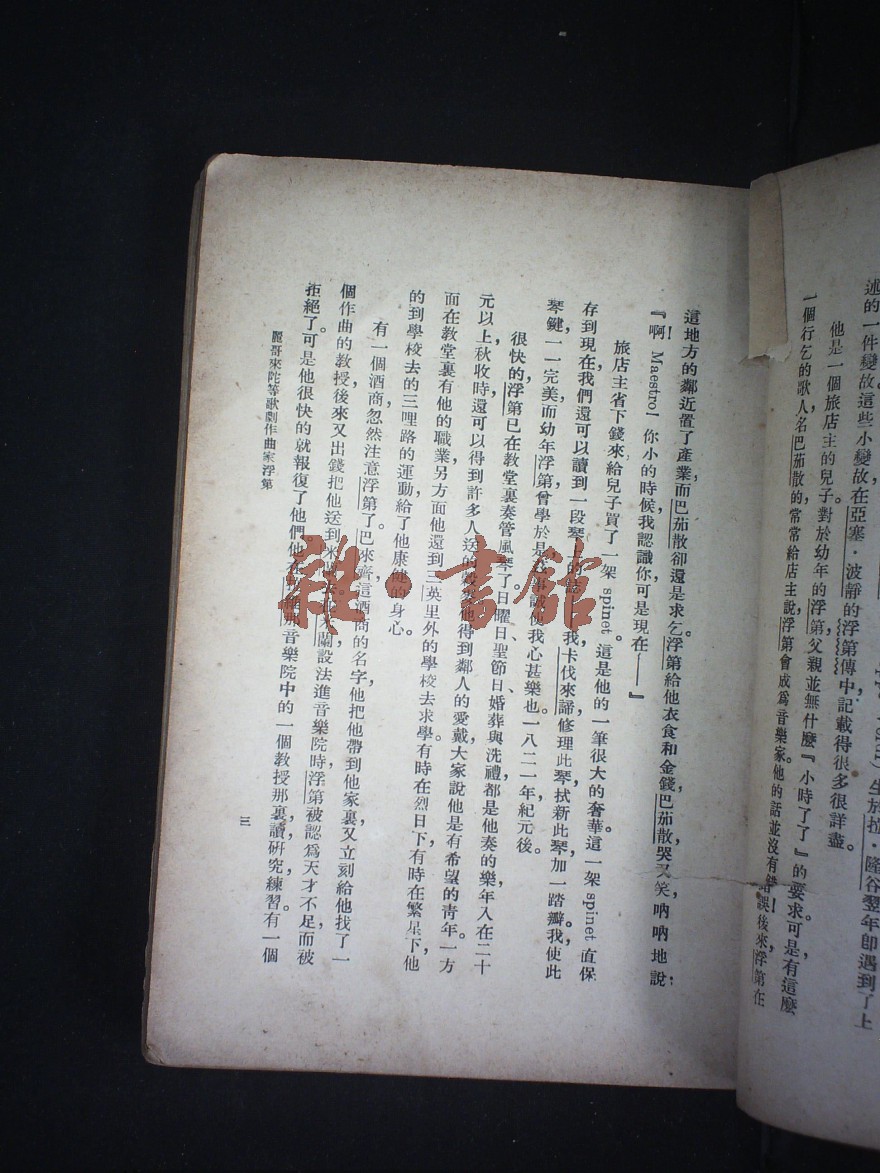 述的一件變故這些小變故在亞塞·波靜的浮第傳中記載得很多很詳盡。
他是一個旅店主的兒子對於幼年的浮第父親並無什麼『小時了了』的要求可是有這麼
一個行乞的歌人名巴茄散的常常給店主說浮第會成爲音樂家他的話並沒有錯誤後來浮第在
這地方的鄰近置了產業，而巴茄散卻還是求乞，浮第給他衣食和金錢，巴茄散哭又笑，吶吶地說：
『啊！Maestro！你小的時候我認識你可是現在——』
旅店主省下錢來給兒子買了一架 spinet。這是他的一筆很大的奢華這一架 spinet 直保
存到現在，我們還可以讀到一段琴上的誌：我卡伐來諦修理此琴，拭新此琴，加一踏瓣，我使此
琴鍵，一一完美而幼年浮第曾學於是
使我心甚樂也一八二一年紀元後。
很快的浮第已在教堂裏奏管風琴了日曜日、聖節日、婚葬與洗禮都是他奏的樂年入在二十
元以上，秋收時還可以得到許多人送的
他得到鄰人的愛戴，大家說他是有希望的青年。一方
面在教堂裏有他的職業，另方面他還到三英里外的學校去求學，有時在烈日下，有時在繁星下，他
的到學校去的三哩路的運動，給了他康健的身心。
有一個酒商忽然注意浮第了。巴來齊這酒商的名字，他把他帶到他家裏，又立刻給他找了一
個作曲的教授，後來又出錢把他送到米
蘭設法進音樂院時，浮第被認爲天才不足，而被
拒絕了。可是他很快的就報復了他們，他在
那音樂院中的一個教授那裏讀研究練習有一個
麗哥來陀等歌劇作曲家浮第
三
雜·書館